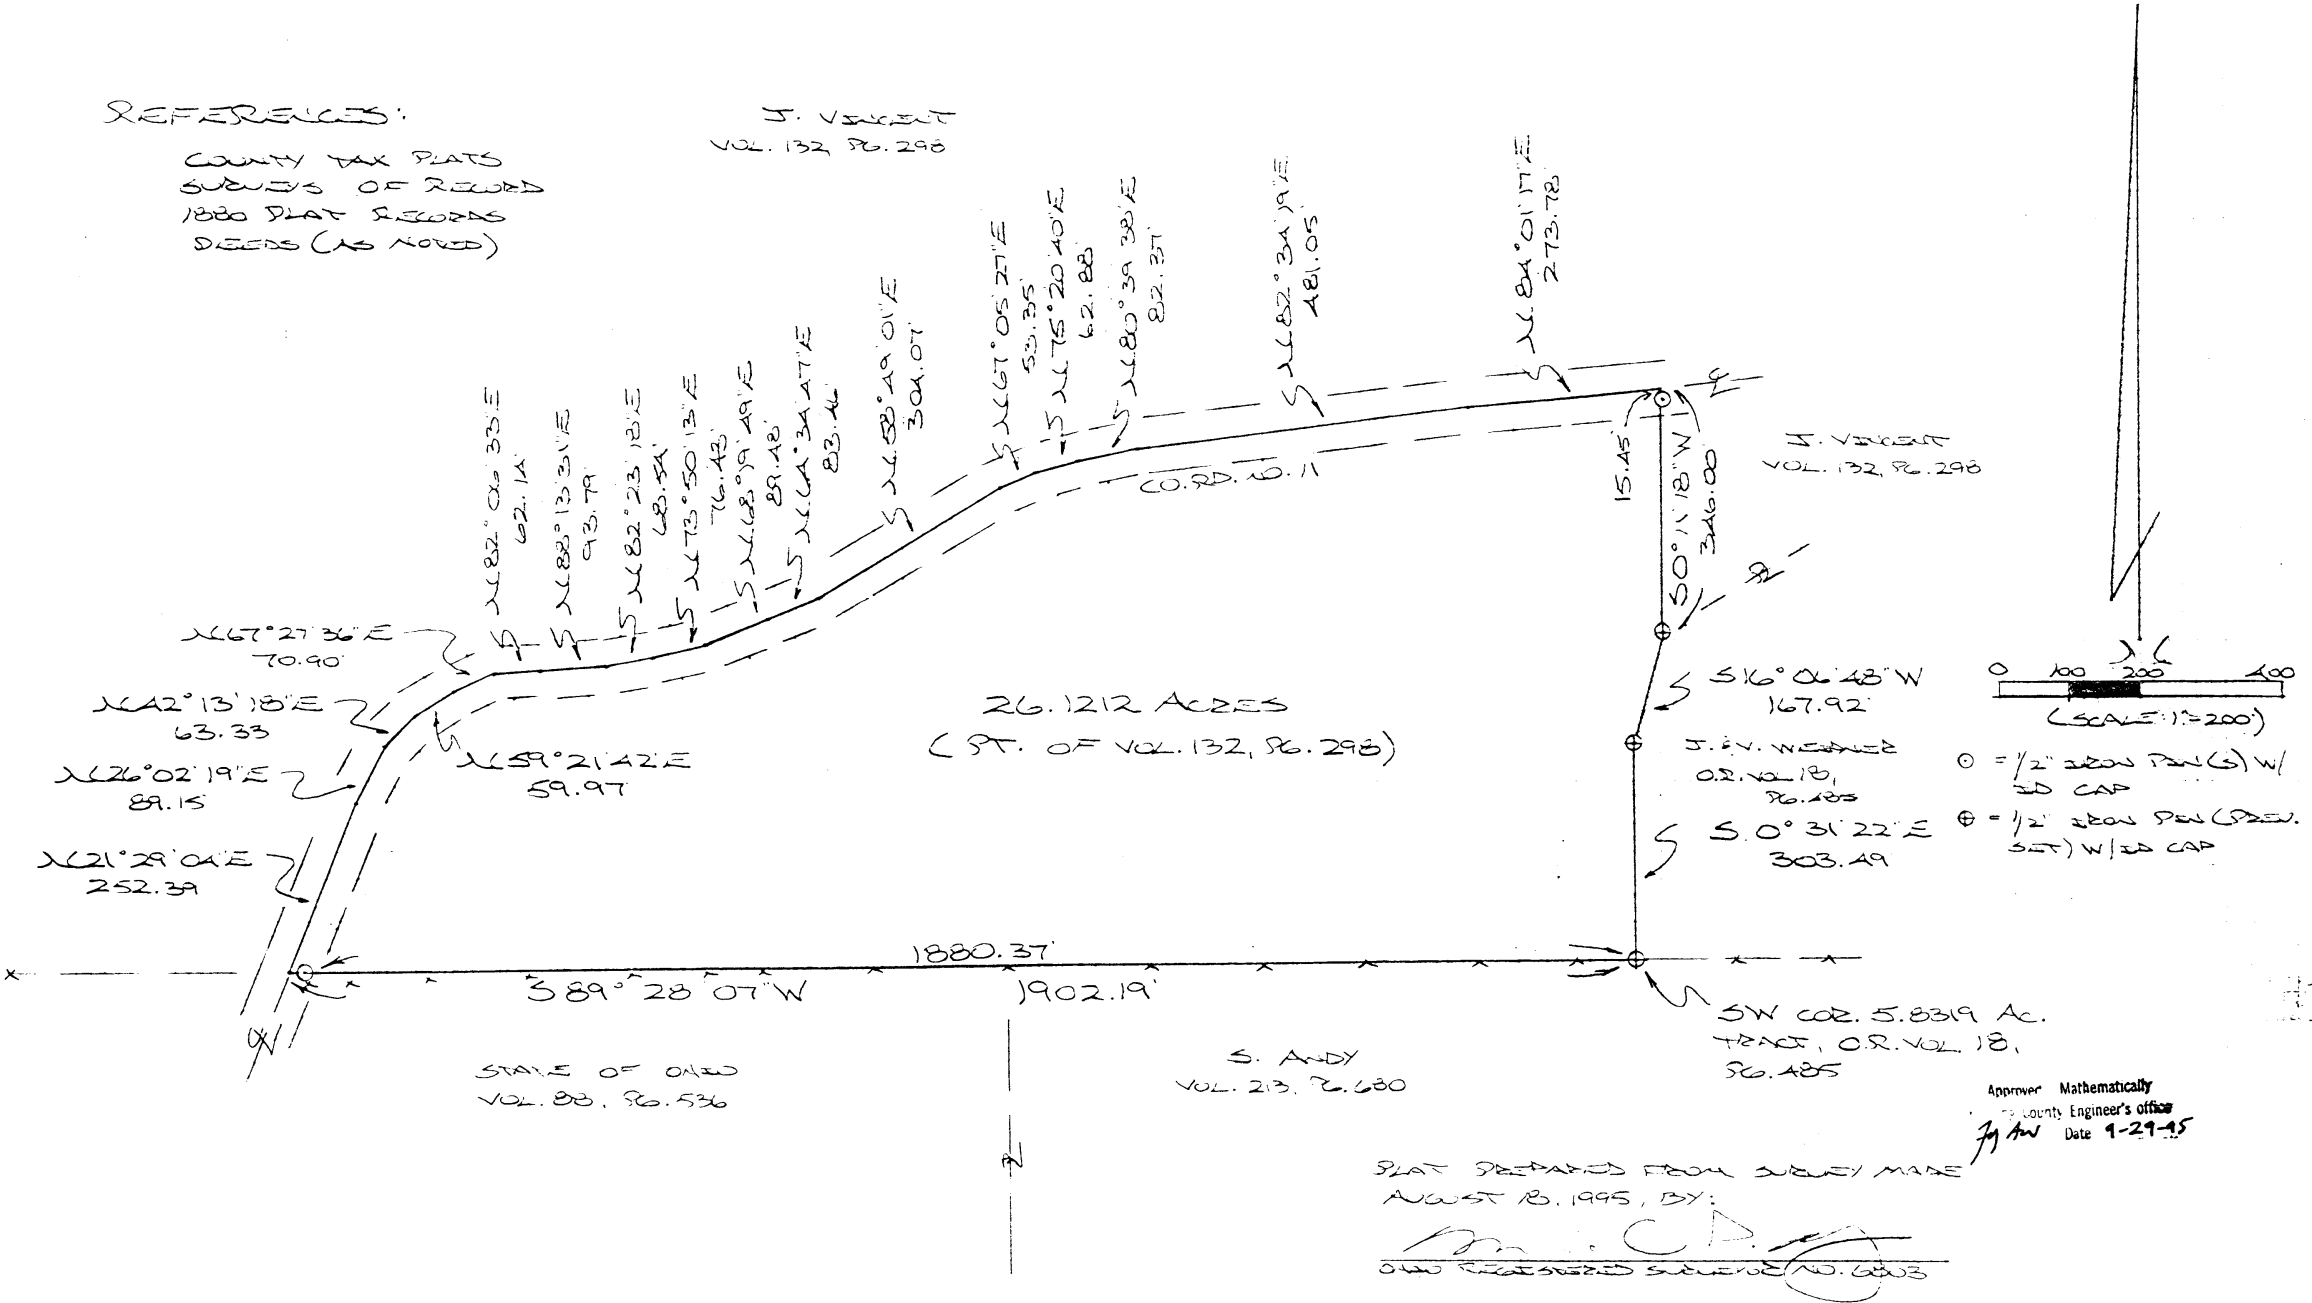 REFERENCES:
COUNTY TAX PLATS
SURVEYS OF RECORD
1880 PLAT RECORDS
DEEDS (AS NOTED)
J. VINCENT
VOL. 132, PG. 298
N 21° 29' 04" E
252.39'
N 26° 02' 19" E
89.15'
N 42° 13' 18" E
63.33'
N 59° 21' 42" E
59.97'
N 67° 27' 36" E
70.90'
N 82° 06' 33" E
62.14'
N 88° 13' 31" E
93.79'
N 82° 23' 18" E
68.54'
N 73° 50' 13" E
76.43'
N 68° 19' 49" E
89.48'
N 64° 34' 47" E
83.46'
N 58° 49' 01" E
304.07'
N 67° 05' 27" E
53.35'
N 75° 20' 40" E
62.88'
N 80° 39' 38" E
82.37'
N 82° 34' 19" E
481.05'
N 84° 01' 17" E
273.78'
CO. RD. NO. 11
15.45'
S 0° 11' 18" W
346.00'
J. VINCENT
VOL. 132, PG. 298
26.1212 ACRES
(PT. OF VOL. 132, PG. 298)
S 16° 06' 48" W
167.92'
J. & V. WERNER
O.R. VOL. 18,
PG. 485
S. 0° 31' 22" E
303.49'
0 100 200 400
(SCALE: 1"=200')
⊙ = 1/2" IRON PIN(S) W/
ID CAP
⊕ = 1/2" IRON PIN (PREV.
SET) W/ ID CAP
1880.37'
S 89° 28' 07" W 1902.19'
SW COR. 5.8319 AC.
TRACT, O.R. VOL. 18,
PG. 485
STATE OF OHIO
VOL. 88, PG. 536
S. ANDY
VOL. 213, PG. 680
Approved Mathematically
County Engineer's office
Date 9-29-95
PLAT PREPARED FROM SURVEY MADE
AUGUST 18, 1995, BY:
OHIO REGISTERED SURVEYOR NO. 6803